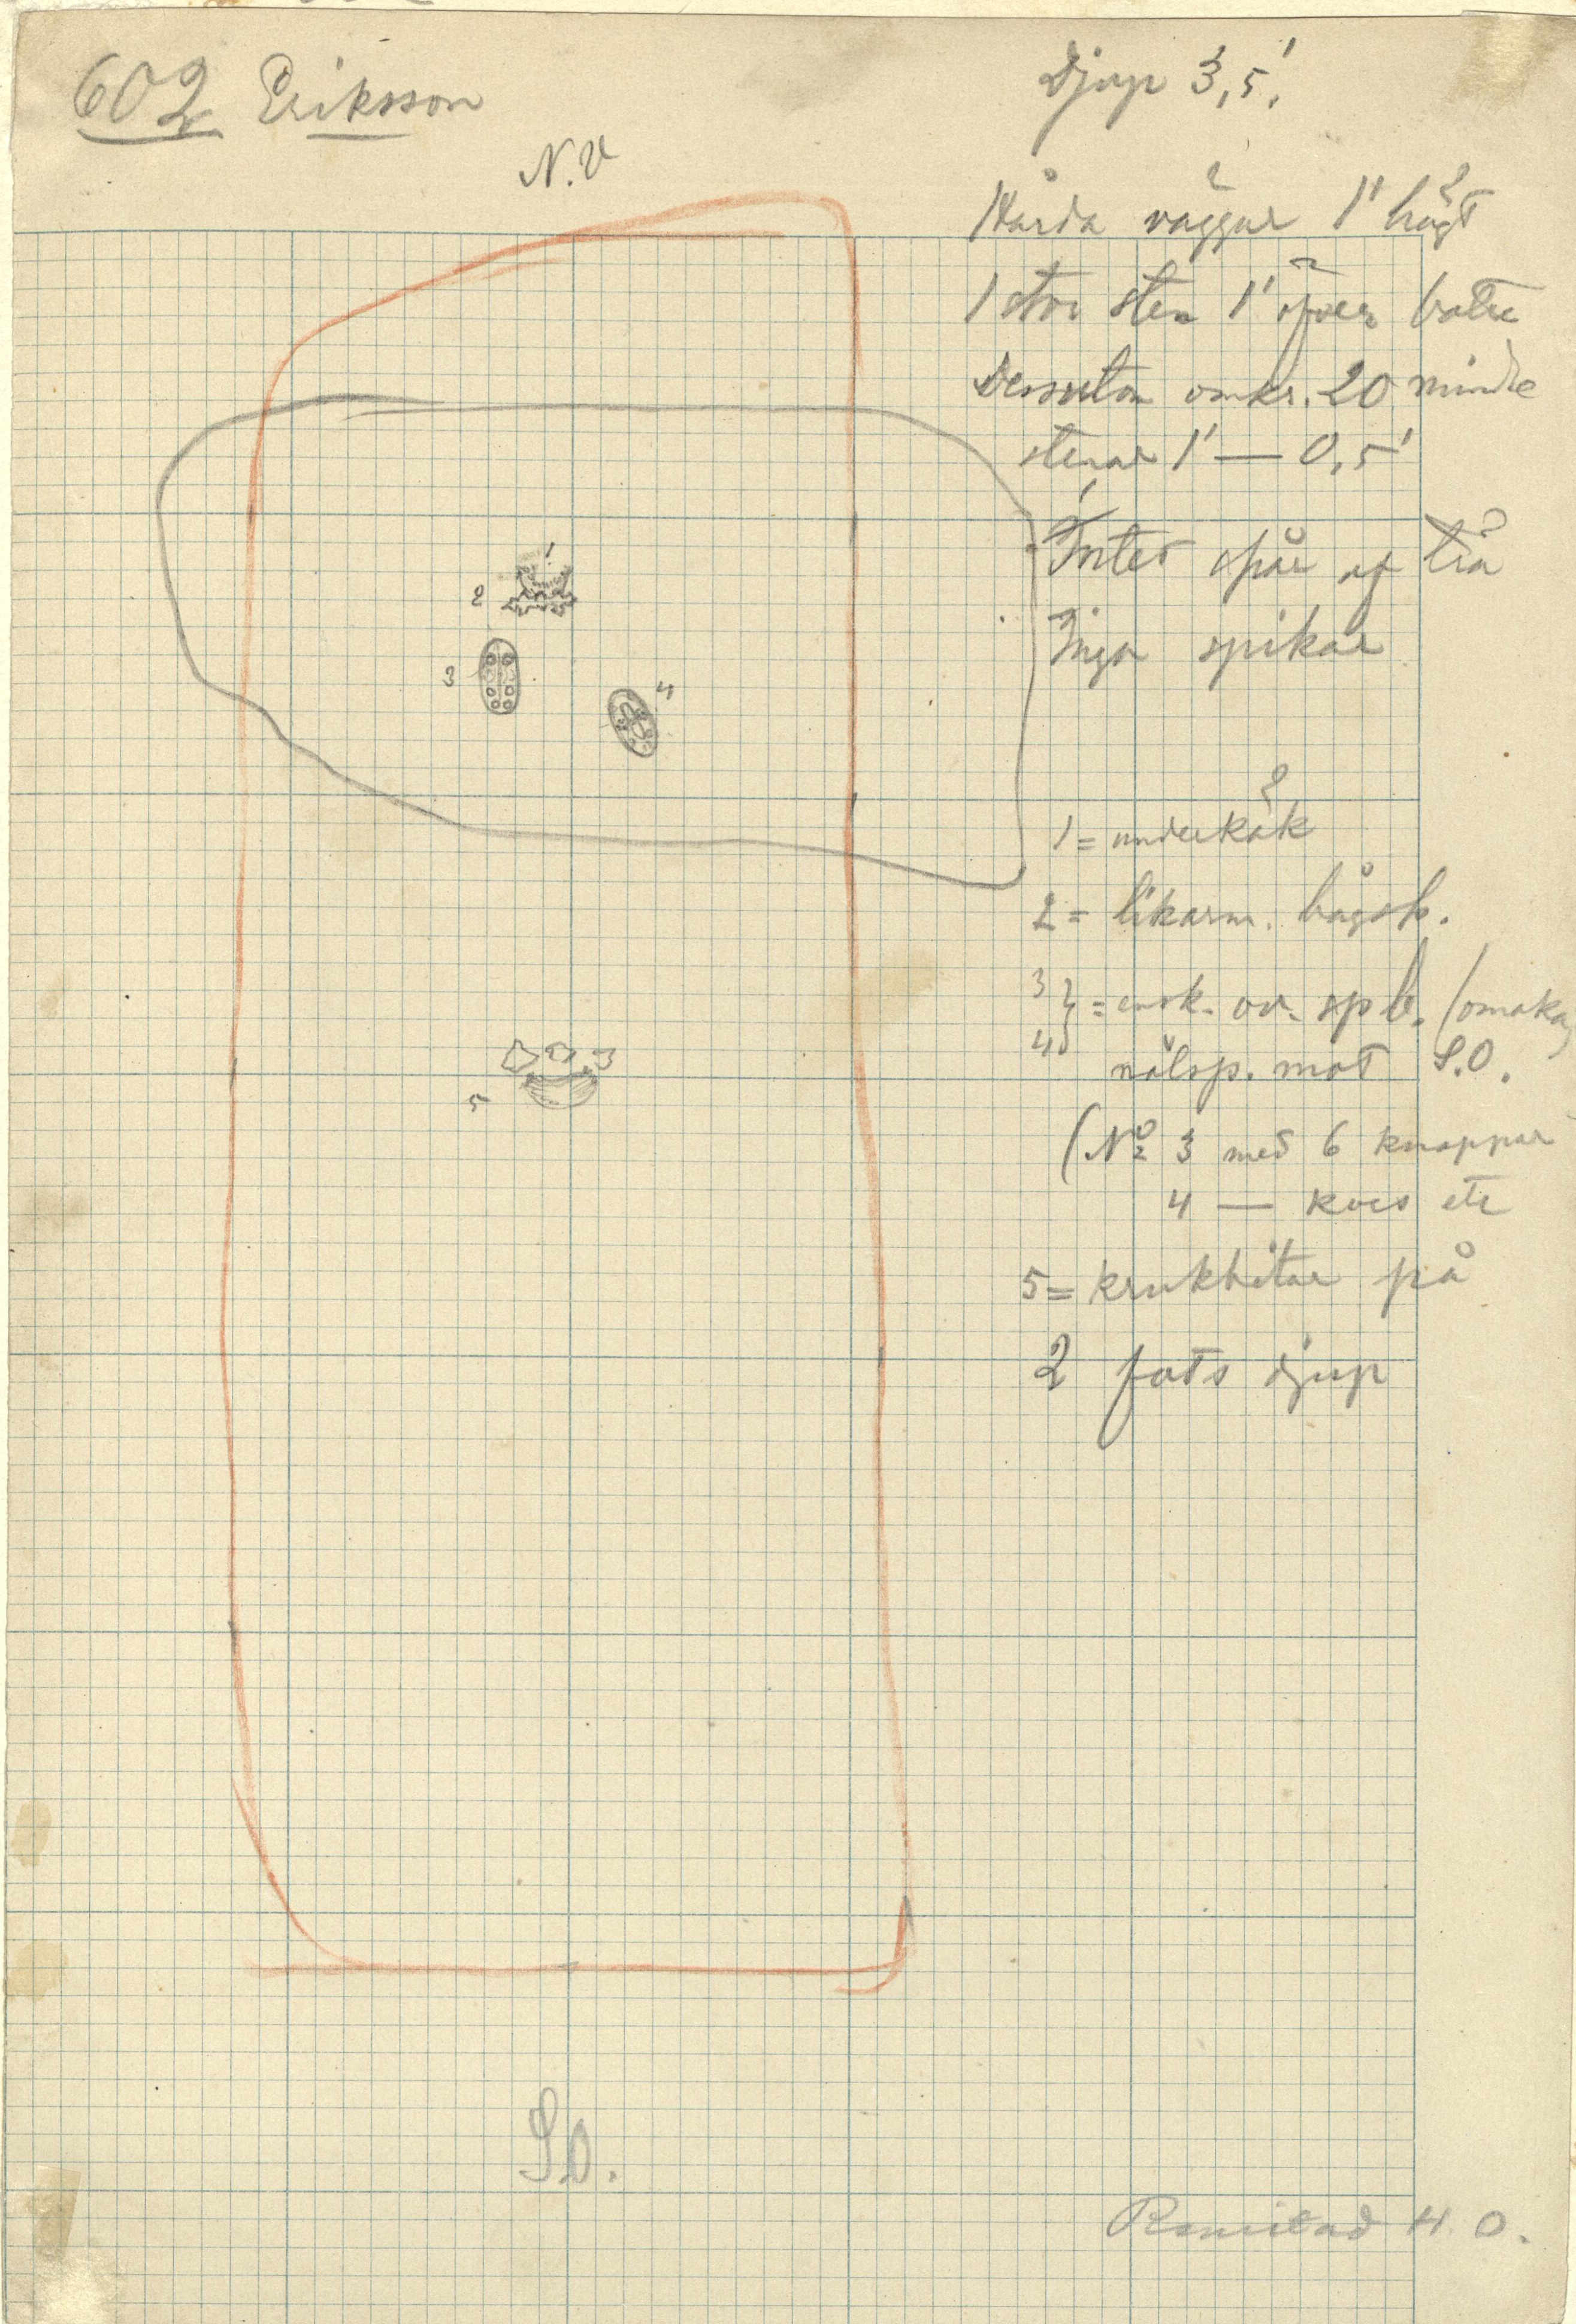 602 Eriksson
Djup 3,5'
N.V
Hårda väggar 1' högt
1 stor sten 1' öfver botten
Dessutom omkr. 20 mindre
stenar 1' — 0,5'
Intet spår af trä
Inga spikar
1
2
3
4
1 = underkäk
2 = likarm. bågsp.
3
4 } = ensk. ov. sp b. (omaka)
nålsp. mot S.O.
(No 3 med 6 knappar
4 — kors etc
5
5 = krukbitar på
2 fots djup
S.O.
H. O.